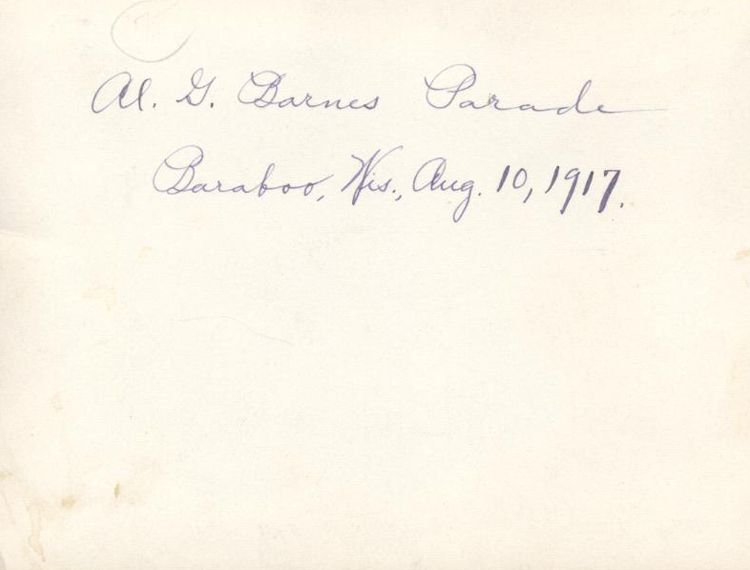 Al. G. Barnes Parade
Baraboo, Wis., Aug. 10, 1917.